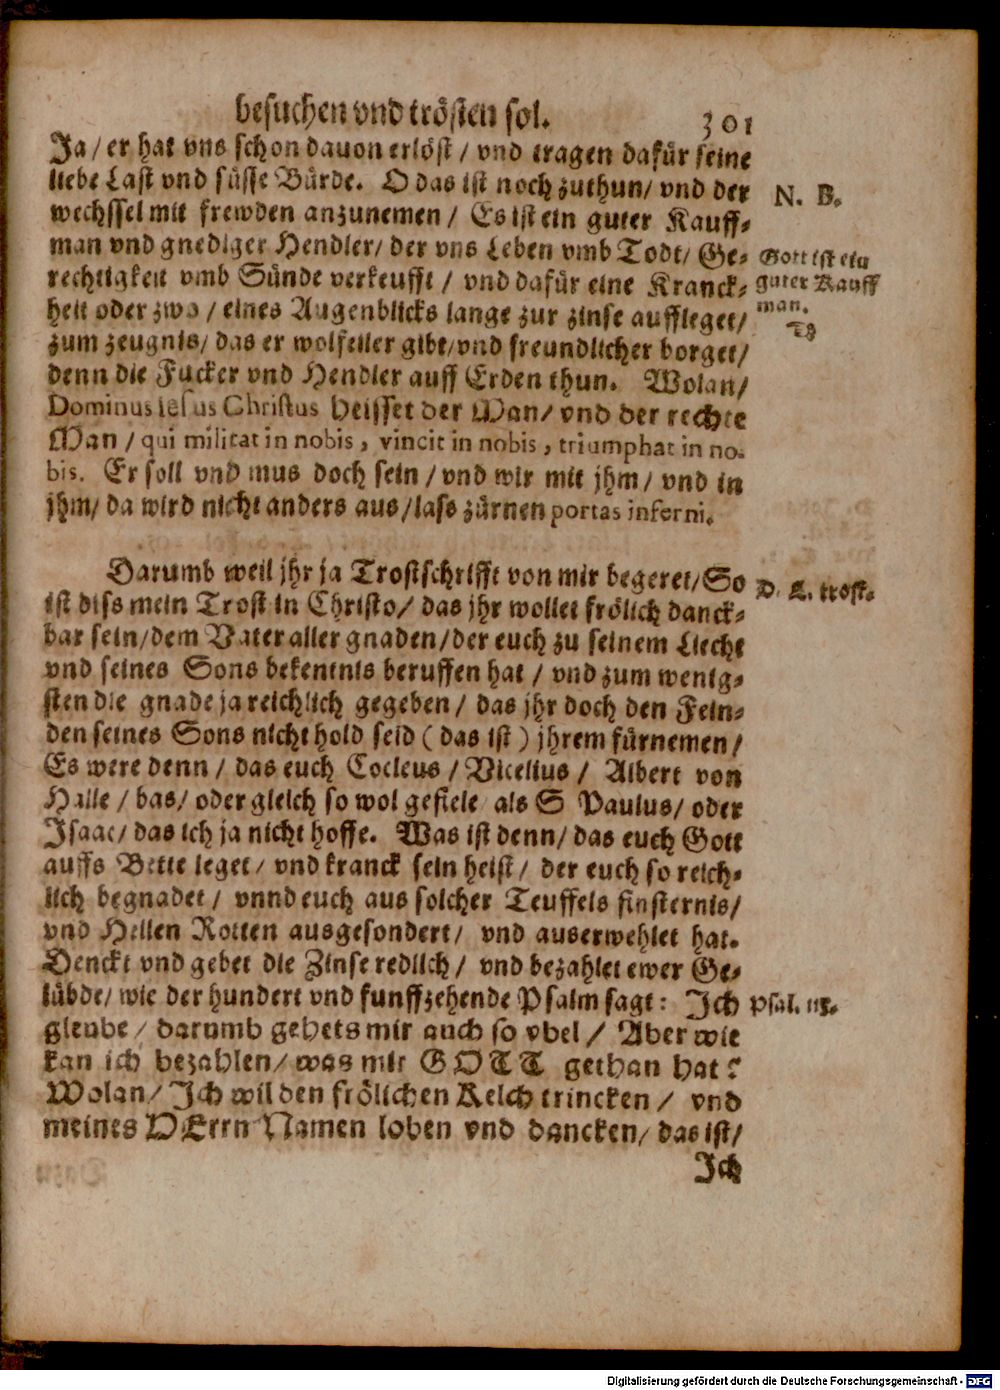 besuchen vnd trösten sol. 301
Ja/ er hat vns schon dauon erlöst/ vnd tragen dafür seine
liebe Last vnd süsse Bürde. O das ist noch zuthun/ vnd der
N. B.
wechssel mit frewden anzunemen/ Es ist ein guter Kauff-
man vnd gnediger Hendler/ der vns Leben vmb Todt/ Ge-
Gott ist ein
rechtigkeit vmb Sünde verkeufft/ vnd dafür eine Kranck-
guter Kauff
heit oder zwo/ eines Augenblicks lange zur zinse aufflegt/
man.
zum zeugnis/ das er wolfeiler gibt/ vnd freundlicher borget/
denn die Fucker vnd Hendler auff Erden thun. Wolan/
Dominus Iesus Christus heisset der Man/ vnd der rechte
Man/ qui militat in nobis, vincit in nobis, triumphat in no-
bis. Er soll vnd mus doch sein/ vnd wir mit jhm/ vnd in
jhm/ da wird nicht anders aus/ lass zürnen portas inferni.
Darumb weil jhr ja Trostschrifft von mir begeret/ So
D. L. trost.
ist diss mein Trost in Christo/ das jhr wollet frölich danck-
bar sein/ dem Vater aller gnaden/ der euch zu seinem Liecht
vnd seines Sons bekentnis beruffen hat/ vnd zum wenig-
sten die gnade ja reichlich gegeben/ das jhr doch den Fein-
den seines Sons nicht hold seid (das ist) jhrem fürnemen/
Es were denn/ das euch Cocleus/ Vicelius/ Albert von
Halle/ bas/ oder gleich so wol gefiele als S Paulus/ oder
Isaac/ das ich ja nicht hoffe. Was ist denn/ das euch Gott
auffs Bette leget/ vnd kranck sein heist/ der euch so reich-
lich begnadet/ vnnd euch aus solcher Teuffels finsternis/
vnd Hellen Rotten ausgesondert/ vnd auserwehlet hat.
Denckt vnd gebet die Zinse redlich/ vnd bezahlet ewer Ge-
lübde/ wie der hundert vnd funffzehende Psalm sagt: Ich
Psal. 115.
gleube/ darumb gehets mir auch so vbel/ Aber wie
kan ich bezahlen/ was mir GOTT gethan hat?
Wolan/ Ich wil den frölichen Kelch trincken/ vnd
meines HErrn Namen loben vnd dancken/ das ist/
Ich
Digitalisierung gefördert durch die Deutsche Forschungsgemeinschaft - DFG